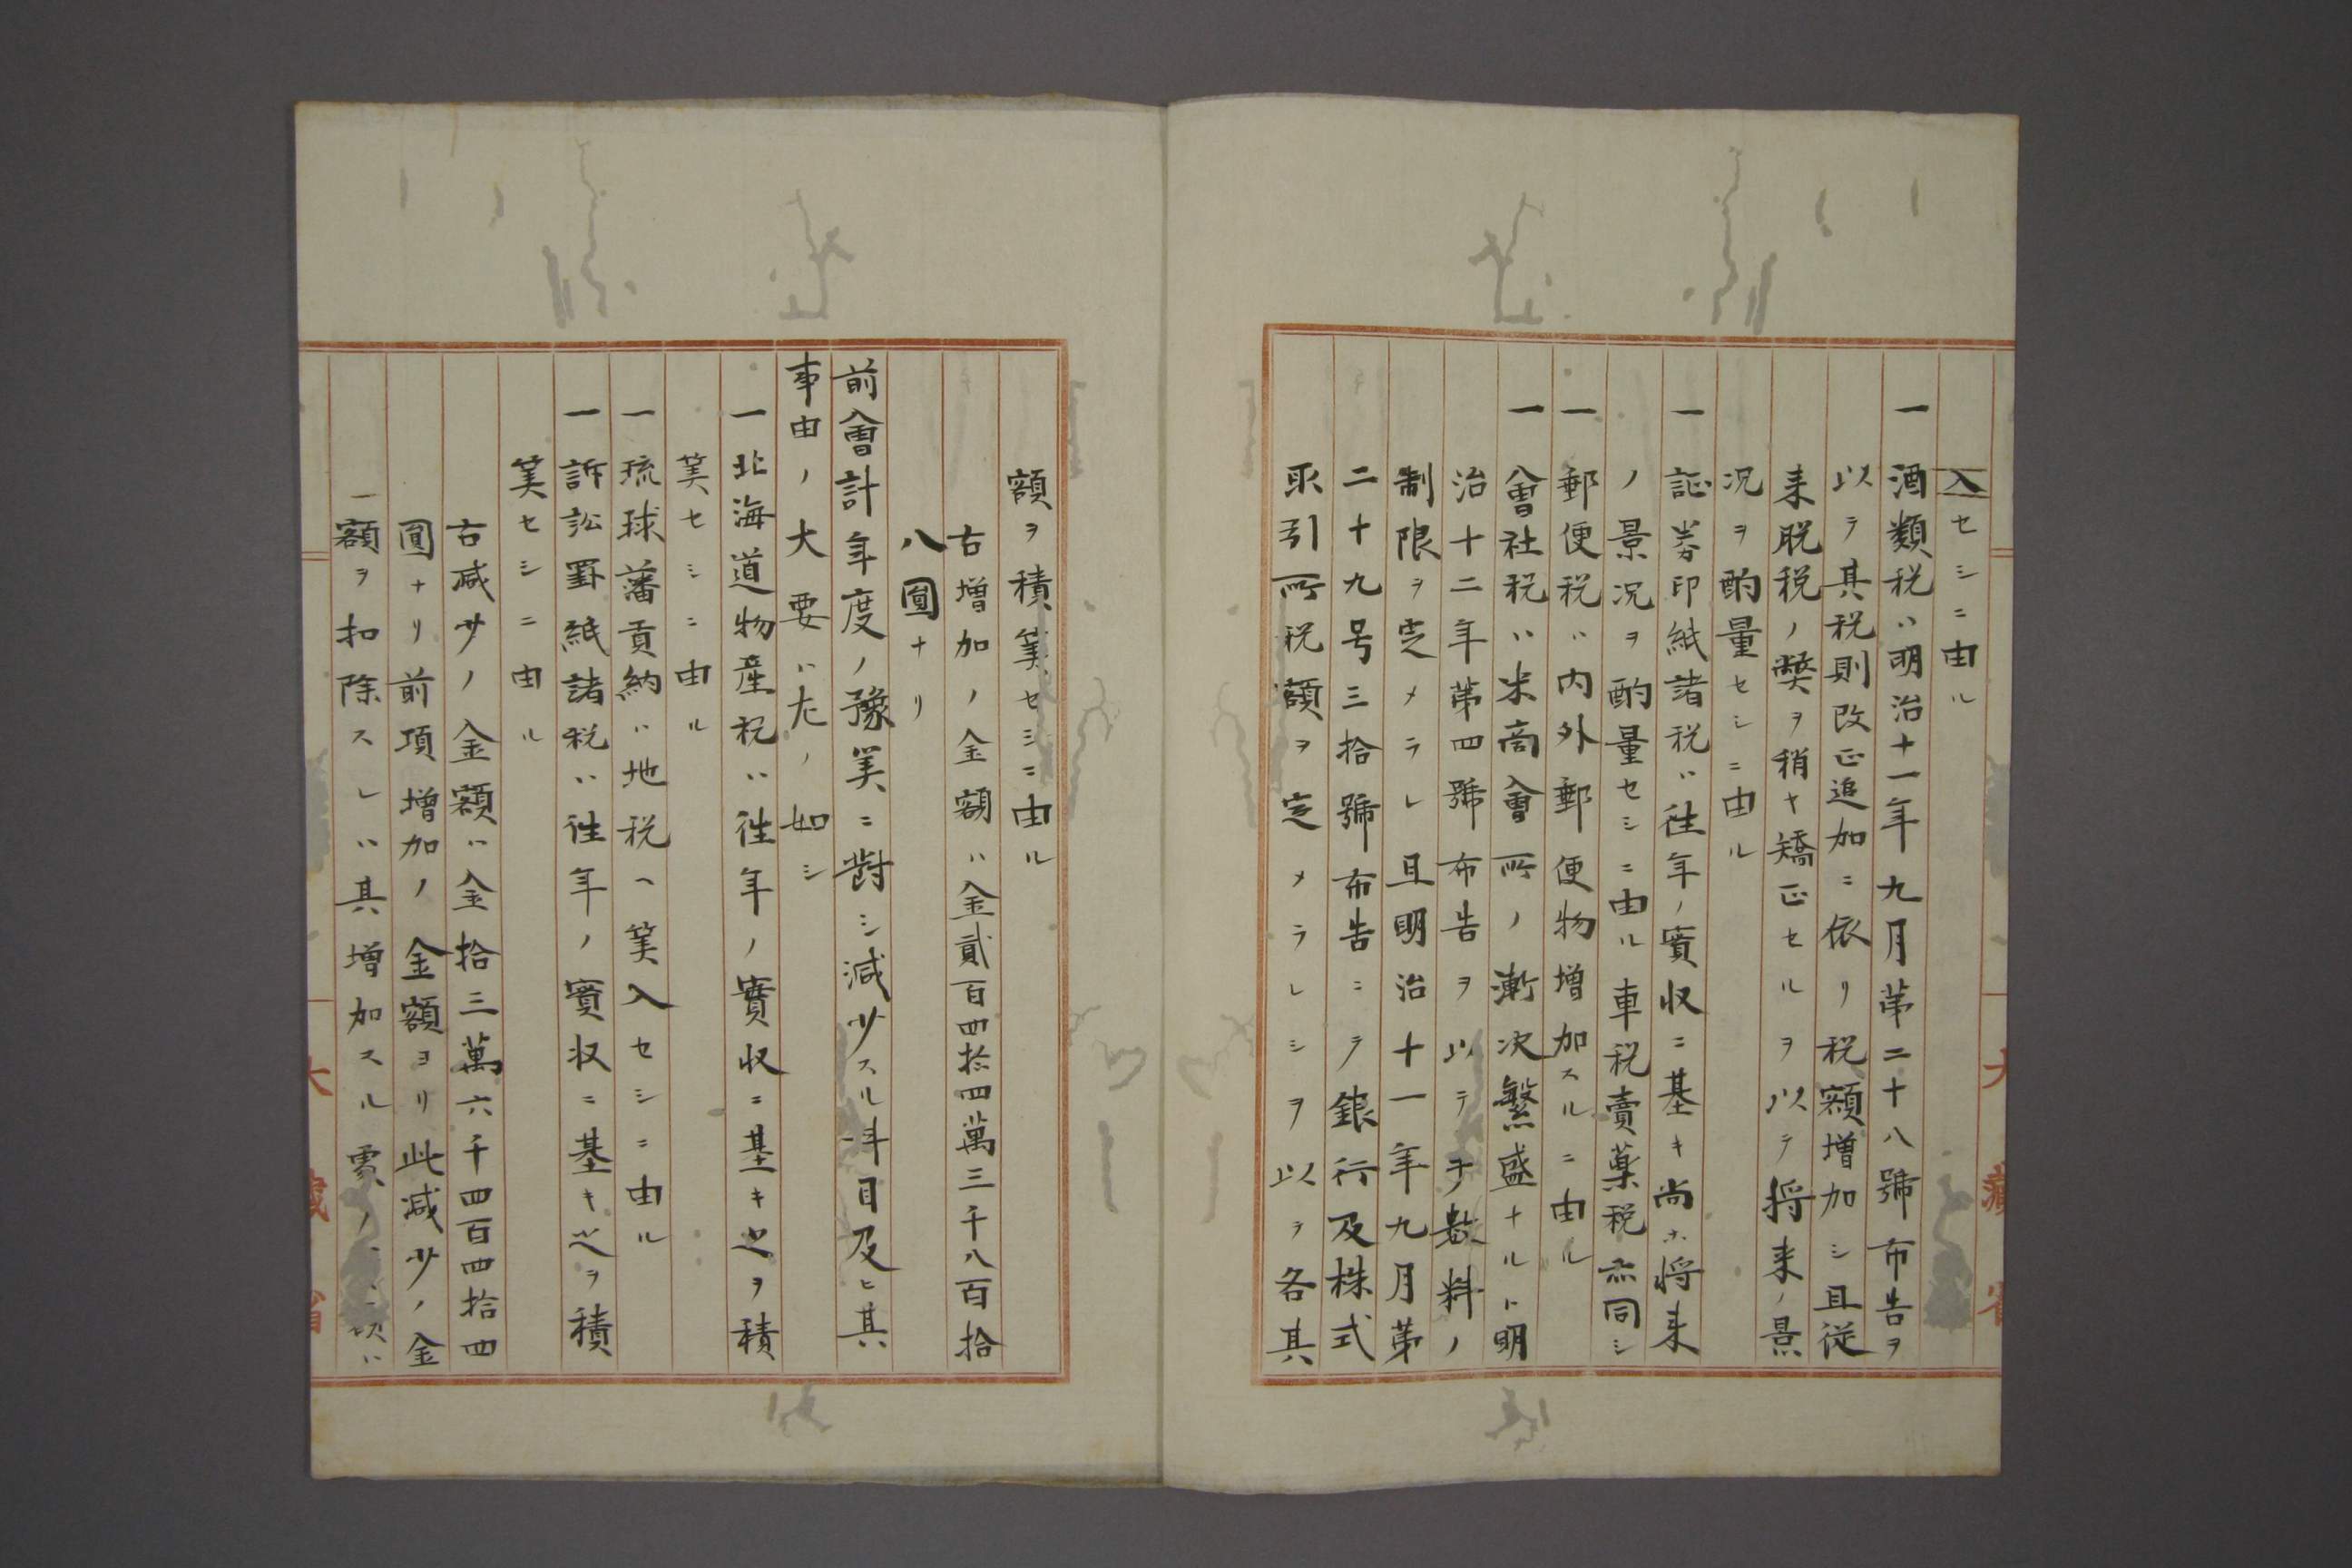 入セシニ由ル
一酒類税ハ明治十一年九月第二十八號布告ヲ
以テ其税則改正追加ニ依リ税額増加シ且従
来脱税ノ弊ヲ稍ヤ矯正セルヲ以テ将来ノ景
況ヲ酌量セシニ由ル
一證券印紙諸税ハ徃年ノ實収ニ基キ尚ホ将来
ノ景況ヲ酌量セシニ由ル車税賣薬税亦同シ
一郵便税ハ内外郵便物増加スルニ由ル
一會社税ハ米商會所ノ漸次繁盛ナルト明
治十二年第四號布告ヲ以テ手数料ノ
制限ヲ定メラレ且明治十一年九月第
二十九号三拾號布告ニテ銀行及株式
取引所税額ヲ定メラレシヲ以テ各其
額ヲ積筭セシニ由ル
右増加ノ金額ハ金貳百四拾四萬三千八百拾
八圓ナリ
前會計年度ノ豫筭ニ對シ減少スル科目及ヒ其
事由ノ大要ハ左ノ如シ
一北海道物産税ハ徃年ノ實収ニ基キ之ヲ積
筭セシニ由ル
一琉球藩貢納ハ地税ヘ筭入セシニ由ル
一訴訟罫紙諸税ハ徃年ノ實収ニ基キ之ヲ積
筭セシニ由ル
右减少ノ金額ハ金拾三萬六千四百四拾四
圓ナリ前項増加ノ金額ヨリ此减少ノ金
額ヲ扣除スレハ其増加スル
大藏省